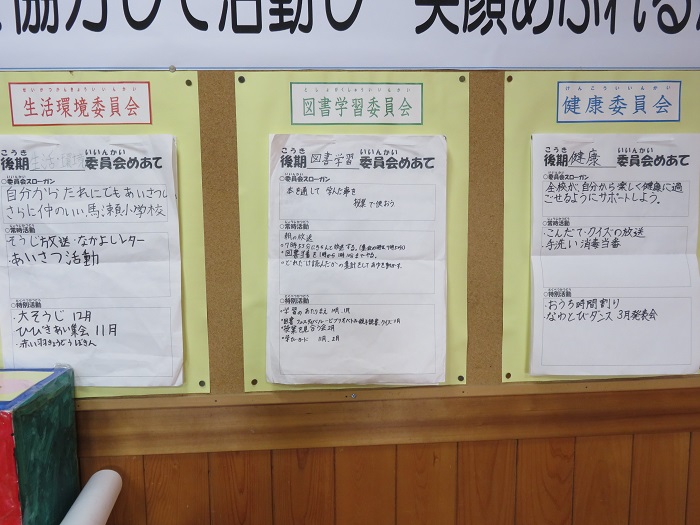 協力して活動し 笑顔あふれる
せいかつかんきょういいんかい
生活環境委員会
こうき いいんかい
後期 生活環境 委員会めあて
○委員会スローガン
自分からだれにでもあいさつし
さらに仲のいい馬瀬小学校
○常時活動
・そうじ放送・なかよしレター
・あいさつ活動
○特別活動
・大そうじ 12月
ひびきあい集会 11月
・赤い羽きょうどうぼきん
としょがくしゅういいんかい
図書学習委員会
こうき いいんかい
後期 図書学習 委員会めあて
○委員会スローガン
本を通して 学んだ事を
授業で使おう
○常時活動
朝の放送
○特別活動
・学習のあたりまえ
・授業を見合う会2月
けんこういいんかい
健康委員会
こうき いいんかい
後期 健康 委員会めあて
○委員会スローガン
全校が、自分から楽しく健康に過
ごせるようにサポートしよう。
○常時活動
・こんだて・クイズの放送
・手洗い消毒当番
○特別活動
・おうち時間割り
・なわとびダンス 3月発表会